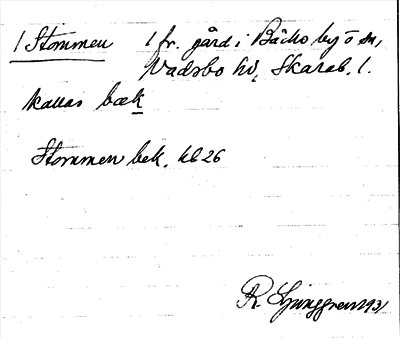 1 Stommen 1 fr. gård i Bäcko by ö sn,
Vadsbo hd, Skarab. l.
kallas bæk
Stommen bek. hb 26
R. Ljunggren 1931